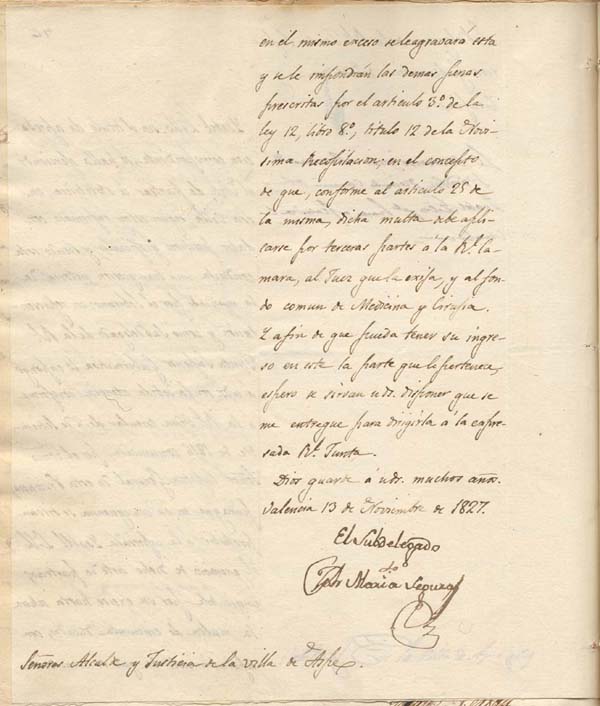 en el mismo exceso se le agravará esta
y se le impondrán las demas penas
prescritas por el articulo 3.º de la
ley 12, libro 8.º, titulo 12 de la Noví-
sima Recopilacion; en el concepto
de que, conforme al articulo 25 de
la misma, dicha multa debe apli-
carse por terceras partes á la Rl. Ca-
mara, al Juez que la exija, y al fon-
do comun de Medicina y Cirujia.
Y afin de que pueda tener su ingre-
so en este la parte que le pertenece,
espero se sirvan uds. disponer que se
me entregue para dirigirla á la espre-
sada Rl. Junta.
Dios guarde á uds. muchos años.
Valencia 13 de Noviembre de 1827.
El Subdelegado
Maria Segura
Señores Alcalde y Justicia de la villa de Aspe.